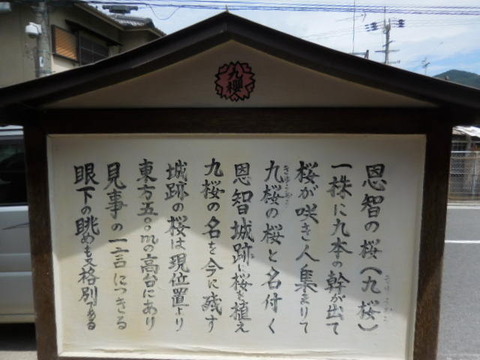 九櫻
恩智の桜(九桜)
一株に九本の幹が出て
桜が咲き人集まりて
九桜の桜と名付く
恩智城跡に桜を植え
九桜の名を今に残す
城跡の桜は現位置より
東方五〇〇mの高台にあり
見事の一言につきる
眼下の眺めも又格別である